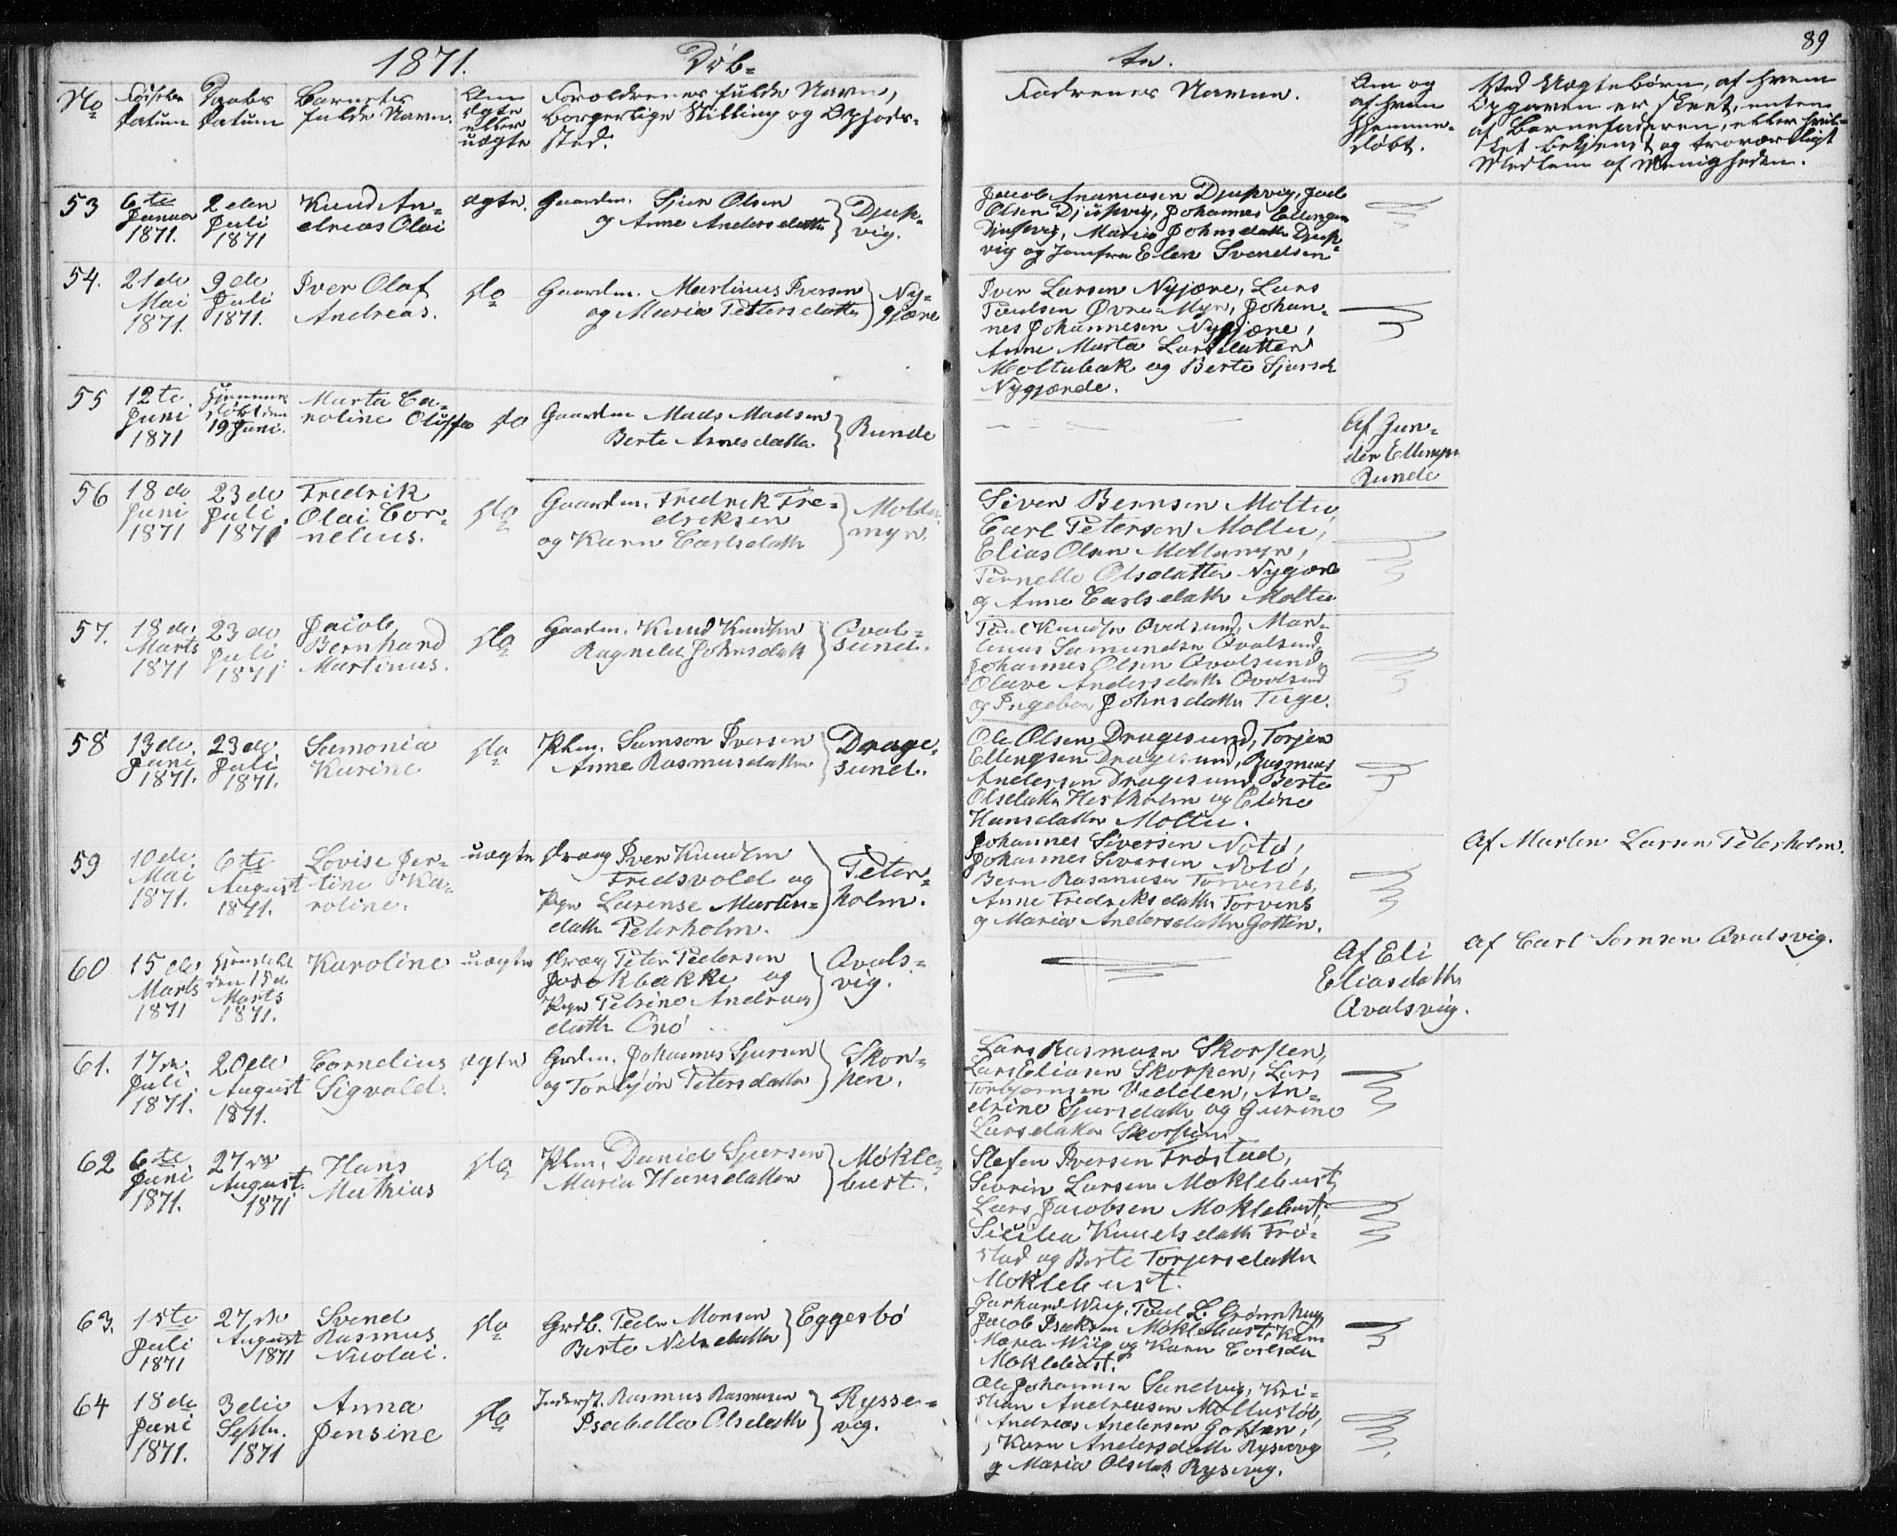 89
1871. Døb- te.
No
Fødsels Datum
Daabs Datum
Barnets fulde Navn.
Om ægte eller uægte
Forældrenes fulde Navne, borgerlige Stilling og Opholds- sted.
Faddrenes Navne.
Om og af hvem hjemme- døbt.
Ved Uægtebørn, af hvem Opgaven er skeet, enten af Barnefaderen, eller hvil- ket bekjendt og troværdigt Medlem af Menigheden.
53
6te Januar 1871.
2den Juli 1871
Knud An- dreas Olai
ægte.
Gaardm. Sjur Olsen
og Anne Andersdatter
Djup- vig.
Jacob Ananiasen Djupvig,
Olsen Djupvig, Johannes Ellingsen
Djupvig, Maria Johnsdatter Djup-
vig og Jomfru Elen Svendsen
54.
21de Mai 1871.
9de Juli 1871.
Iver Olaf Andreas.
do
Gaardm. Martinus Iversen
og Maria Pettersdatter
Ny- gjære
Iver Larsen Nyjære, Lars
Paulsen Øvre-Myr, Johan-
nes Johannesen Nygjære,
Anne Marta Larsdatter
Moltubak og Berte Sjursd.
Nygjærde.
55
12te Juni 1871
Hjemme døbt den 19 Juni.
Marta Ca- roline Oluffa
do
Gaardm Mads Madsen
Berte Arnesdatter
Runde
Af Gun- der Ellingsn Runde
56
18de Juni 1871
23de Juli 1871.
Fredrik Olai Cor- nelius.
do
Gaardm. Fredrik Fre-
driksen
og Karn Carlsdatter
Moldu myr.
Siver Bernsen Moltu,
Carl Petersen Moltu,
Elias Olsen Moltumyr,
Pernelle Olsdatter Nygjære
og Anne Carlsdatter Moltu
57.
18de Marts 1871
23de Juli 1871
Jacob Bernhard Martinus.
do
Gaardm. Knud Knudsen
Ragnilde Johnsdatt
Qvals- sund.
Paul Knudsn Qvalsund, Mar-
tinus Samundsn Qvalsund,
Johannes Olsen Qvalsund,
Olave Andersdatter Qvalsund
og Ingebor Johnsdatter Tuge.
58
13de Juni 1871.
23de Juli 1871.
Samonia Karine
do
Plm. Samson Iversen
Anne Rasmusdatter
Drage- sund.
Ole Olsen Dragesund, Torjer
Ellingsen Dragesund, Rasmus
Andersen Dragesund, Berte
Olsdatter Hestholm og Eline
Hansdatter Moltu.
59
10de Mai 1871.
6te August 1871.
Lovise Per- tine Ka- roline.
uægte
Dreng Iver Knudsen
Fredsvold og
Pige Larense Martin-
datter Peterholm.
Peter- holm.
Johannes Siversen Notø,
Johannes Siversen Notø,
Bern Rasmusen Torvenes,
Anne Fredriksdatter Torvens
og Maria Andersdatter Gotten.
Af Martin Larsen Peterholm.
60
15de Marts 1871
Hjemdøbt den 15de Marts 1871.
Karoline
uægte
Dreng Peter Pedersen
Josokbakke og
Pige Petrine Andreas
datter Onø
Qvals- vig.
Af Eli Eliasdatter Qvalsvig.
Af Carl Sornsen Qvalsvig.
61.
17de Juli 1871.
20de August 1871.
Cornelius Sigvald.
ægte
Grdm. Johannes Sjursen
og Torbjør Petersdatter
Skor- pen.
Lars Rasmusen Skorpen,
Lars Eliasen Skorpen, Lars
Torbjørnsen Vadden, An-
drine Sjursdatter og Gurine
Larsdatter Skorpen.
62
6te Juni 1871.
27de August 1871
Hans Mathias
do
Plm. Daniel Sjursen
Maria Hansdatter
Møkle- bust.
Stefen Iversen Frøstad,
Sivrin Larsen Moklebust,
Lars Jacobsen Moklebust,
Sicilia Knudsdatter Frø-
stad og Berte Torjersdatter
Moklebust.
63.
15te Juli 1871
27de August 1871
Svend Rasmus Nicolai.
do
Grdb. Peder Monsen
Berte Nilsdatter
Eggesbø
Gerhard Wiig, Paul L. Grønnhaug
Jacob Isaksen Møklebust,
Maria Wiig og Karn Carlsda
Moklebust.
64
18de Juni 1871.
3die Septbr. 1871
Anna Jensine
do
Inderst. Rasmus Rasmusen
Isabella Olsdatter
Rysse- vig.
Ole Johannsen Sandvig, Kri-
stian Andreasen Moltustøl,
Andreas Andersen Gotten,
Karn Andersdatter Rysevg
og Maria Olsdat. Rysevig.